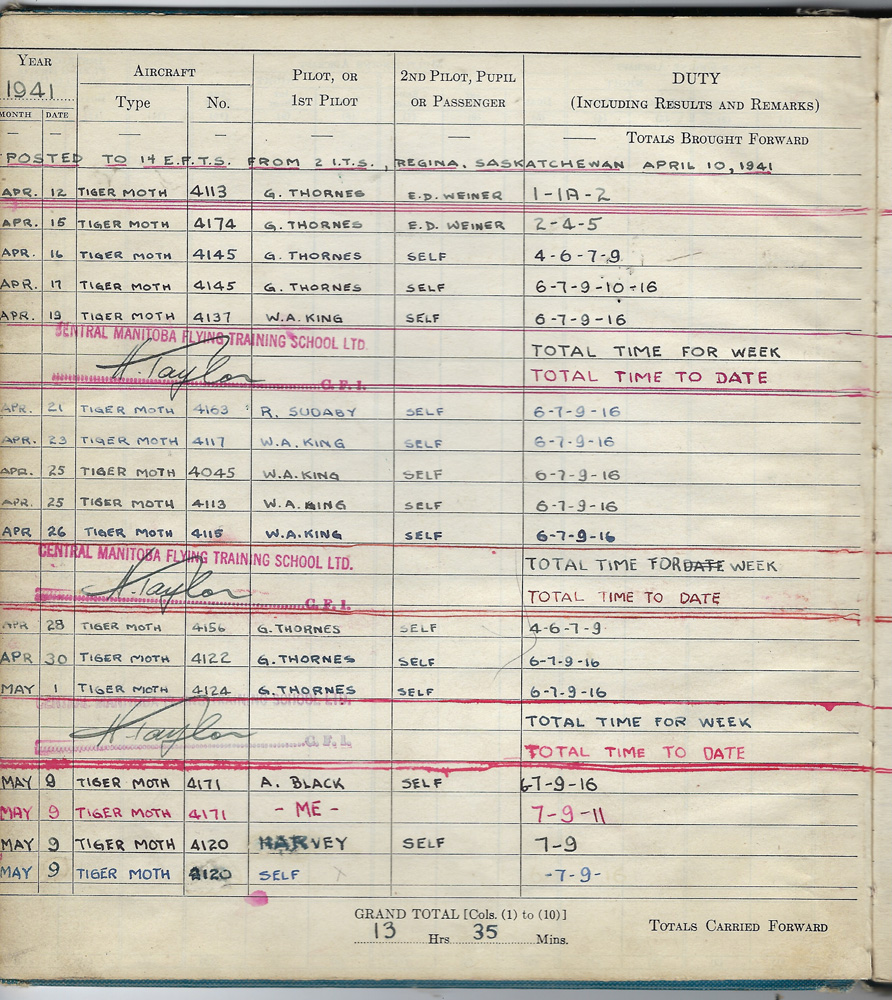 YEAR AIRCRAFT PILOT, OR 2ND PILOT, PUPIL DUTY
1941 Type No. 1ST PILOT OR PASSENGER (INCLUDING RESULTS AND REMARKS)
MONTH DATE
— — — — — — — TOTALS BROUGHT FORWARD
POSTED TO 14 E.F.T.S. FROM 2 I.T.S., REGINA, SASKATCHEWAN APRIL 10, 1941
APR. 12 TIGER MOTH 4113 G. THORNES E.D. WEINER 1-1A-2
APR. 15 TIGER MOTH 4174 G. THORNES E.D. WEINER 2-4-5
APR. 16 TIGER MOTH 4145 G. THORNES SELF 4-6-7-9
APR. 17 TIGER MOTH 4145 G. THORNES SELF 6-7-9-10-16
APR. 19 TIGER MOTH 4137 W.A. KING SELF 6-7-9-16
CENTRAL MANITOBA FLYING TRAINING SCHOOL LTD.
TOTAL TIME FOR WEEK
H. Taylor C.F.I. TOTAL TIME TO DATE
APR. 21 TIGER MOTH 4163 R. SUDABY SELF 6-7-9-16
APR. 23 TIGER MOTH 4117 W.A. KING SELF 6-7-9-16
APR. 25 TIGER MOTH 4045 W.A. KING SELF 6-7-9-16
APR. 25 TIGER MOTH 4113 W.A. KING SELF 6-7-9-16
APR. 26 TIGER MOTH 4115 W.A. KING SELF 6-7-9-16
CENTRAL MANITOBA FLYING TRAINING SCHOOL LTD.
TOTAL TIME FOR DATE WEEK
H. Taylor C.F.I. TOTAL TIME TO DATE
APR 28 TIGER MOTH 4156 G. THORNES SELF 4-6-7-9
APR 30 TIGER MOTH 4122 G. THORNES SELF 6-7-9-16
MAY 1 TIGER MOTH 4124 G. THORNES SELF 6-7-9-16
CENTRAL MANITOBA FLYING TRAINING SCHOOL LTD.
TOTAL TIME FOR WEEK
H. Taylor C.F.I. TOTAL TIME TO DATE
MAY 9 TIGER MOTH 4171 A. BLACK SELF 6-7-9-16
MAY 9 TIGER MOTH 4171 - ME - 7-9-11
MAY 9 TIGER MOTH 4120 HARVEY SELF 7-9
MAY 9 TIGER MOTH 4120 SELF -7-9-
GRAND TOTAL [Cols. (1) to (10)]
13 Hrs. 35 Mins. TOTALS CARRIED FORWARD